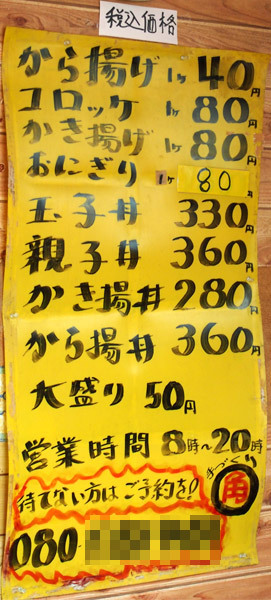 税込価格
から揚げ 1ヶ 40円
コロッケ 1ヶ 80円
かき揚げ 1ヶ 80円
おにぎり 1ヶ 80円
玉子丼 330円
親子丼 360円
かき揚丼 280円
から揚丼 360円
大盛り 50円
営業時間 8時〜20時
手づくり
角
待てない方はご予約を!
080-